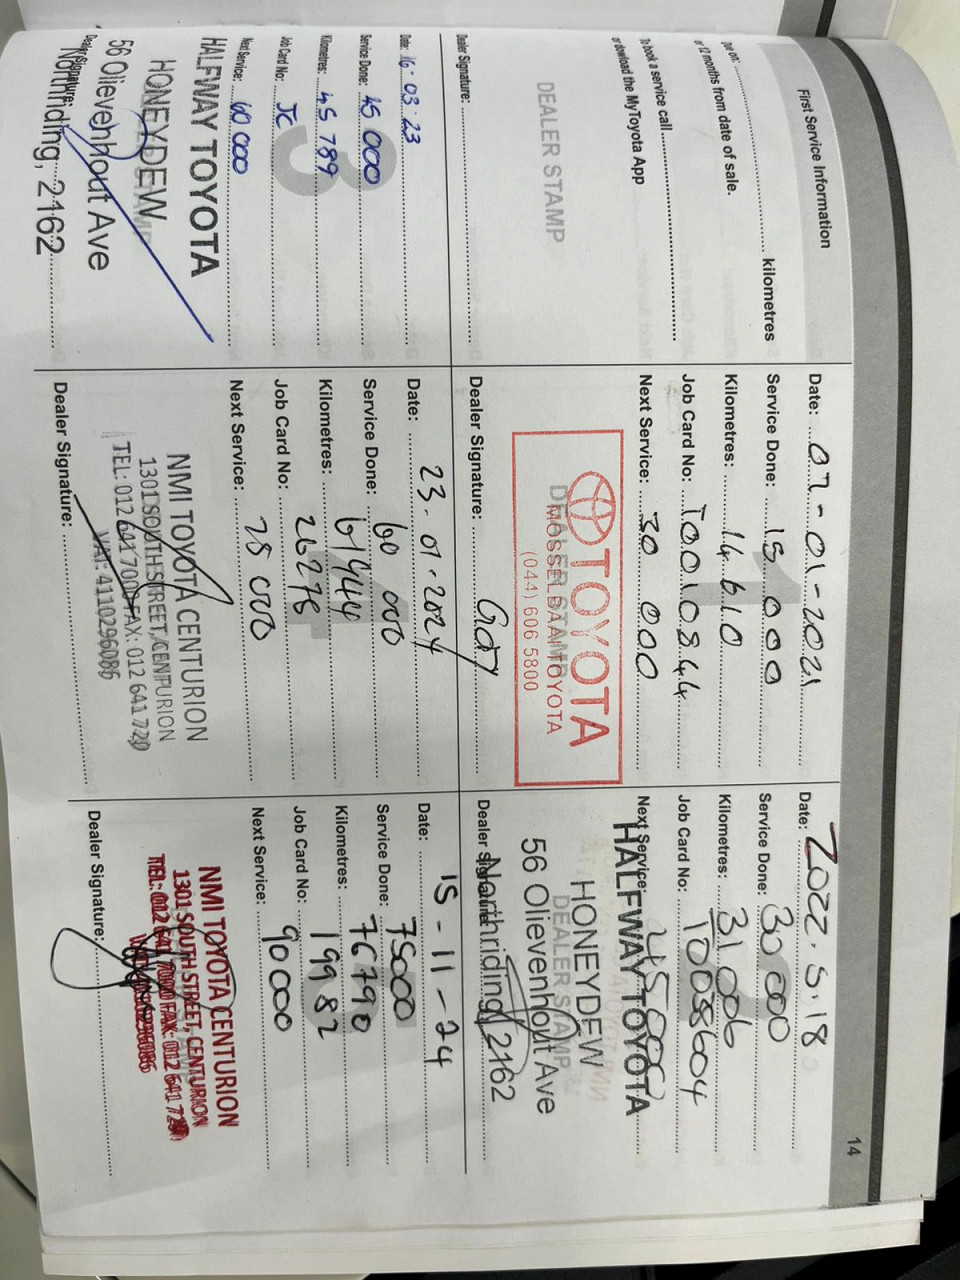 14
First Service Information
kilometres
or 12 months from date of sale.
To book a service call
or download the MyToyota App
DEALER STAMP
Dealer Signature:
Date: 07-01-2021
Service Done: 15 000
Kilometres: 14 610
Job Card No: T0010844
Next Service: 30 000
TOYOTA
DEALER STAMP
MOSSELBAAI TOYOTA
(044) 606 5800
Dealer Signature:
Date: 2022.5.18
Service Done: 30 000
Kilometres: 31006
Job Card No: 10038604
Next Service: 45000
HALFWAY TOYOTA
HONEYDEW
DEALER STAMP
56 Olievenhout Ave
Northriding, 2162
Dealer Signature:
Date: 16.03.23
Service Done: 45 000
Kilometres: 45 789
Job Card No: JC
Next Service: 60 000
3
HALFWAY TOYOTA
HONEYDEW
56 Olievenhout Ave
Dealer Signature:
Northriding, 2162
Date: 23-01-2024
Service Done: 60 000
Kilometres: 61444
Job Card No: 26276
Next Service: 75 000
4
NMI TOYOTA CENTURION
1301 SOUTH STREET, CENTURION
TEL: 012 641 7000 FAX: 012 641 720
VAT: 4110296086
Dealer Signature:
Date: 15-11-24
Service Done: 75000
Kilometres: 76790
Job Card No: 19982
Next Service: 90 000
NMI TOYOTA CENTURION
1301 SOUTH STREET, CENTURION
TEL: 012 641 7000 FAX: 012 641 720
Dealer Signature: